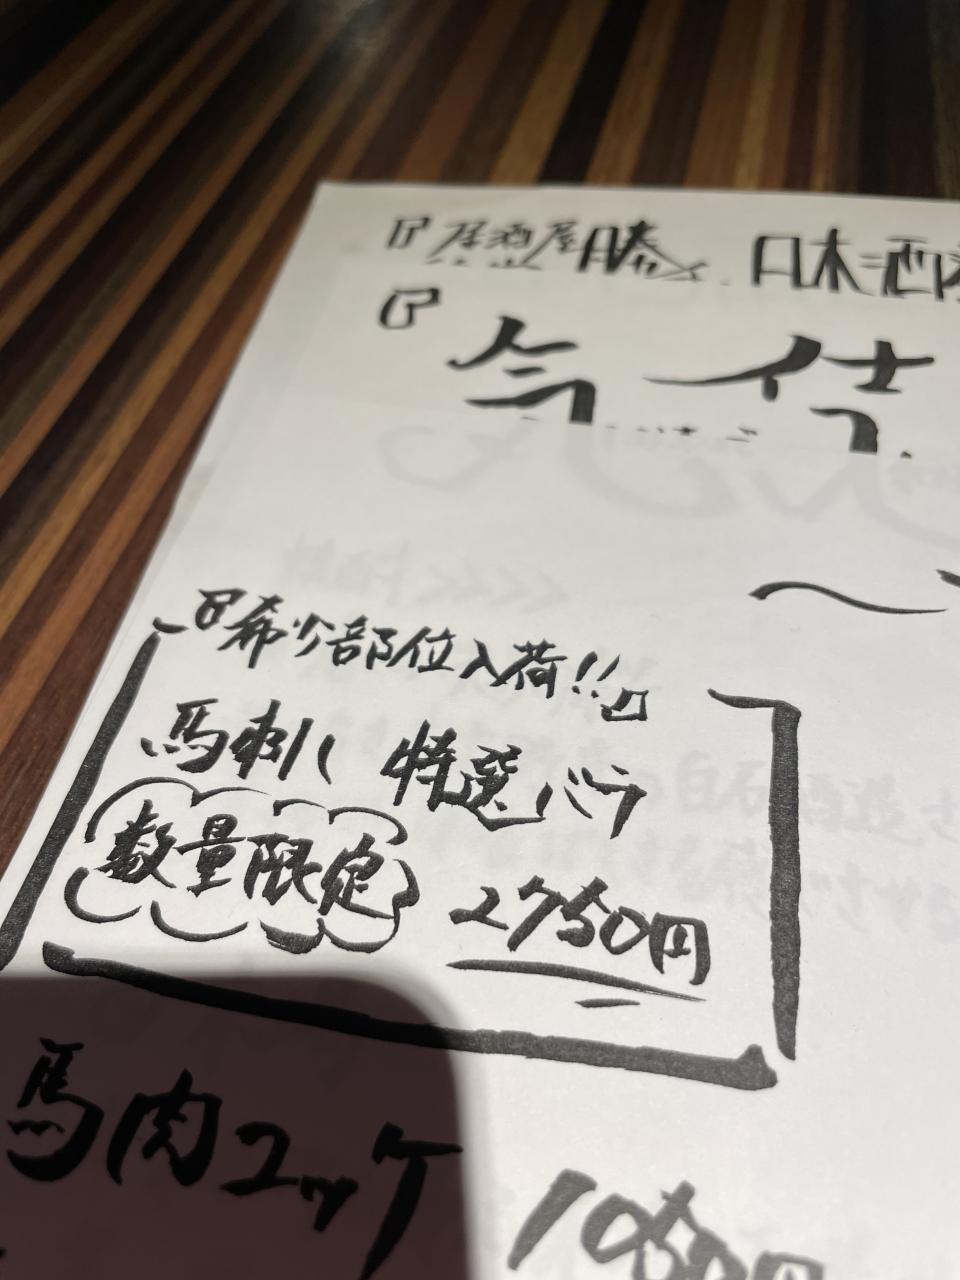 『居酒屋勝 日本酒
『今 仕
～
『希少部位入荷!!』
馬刺し 特選バラ
数量限定 2750円
馬肉ユッケ 1050円